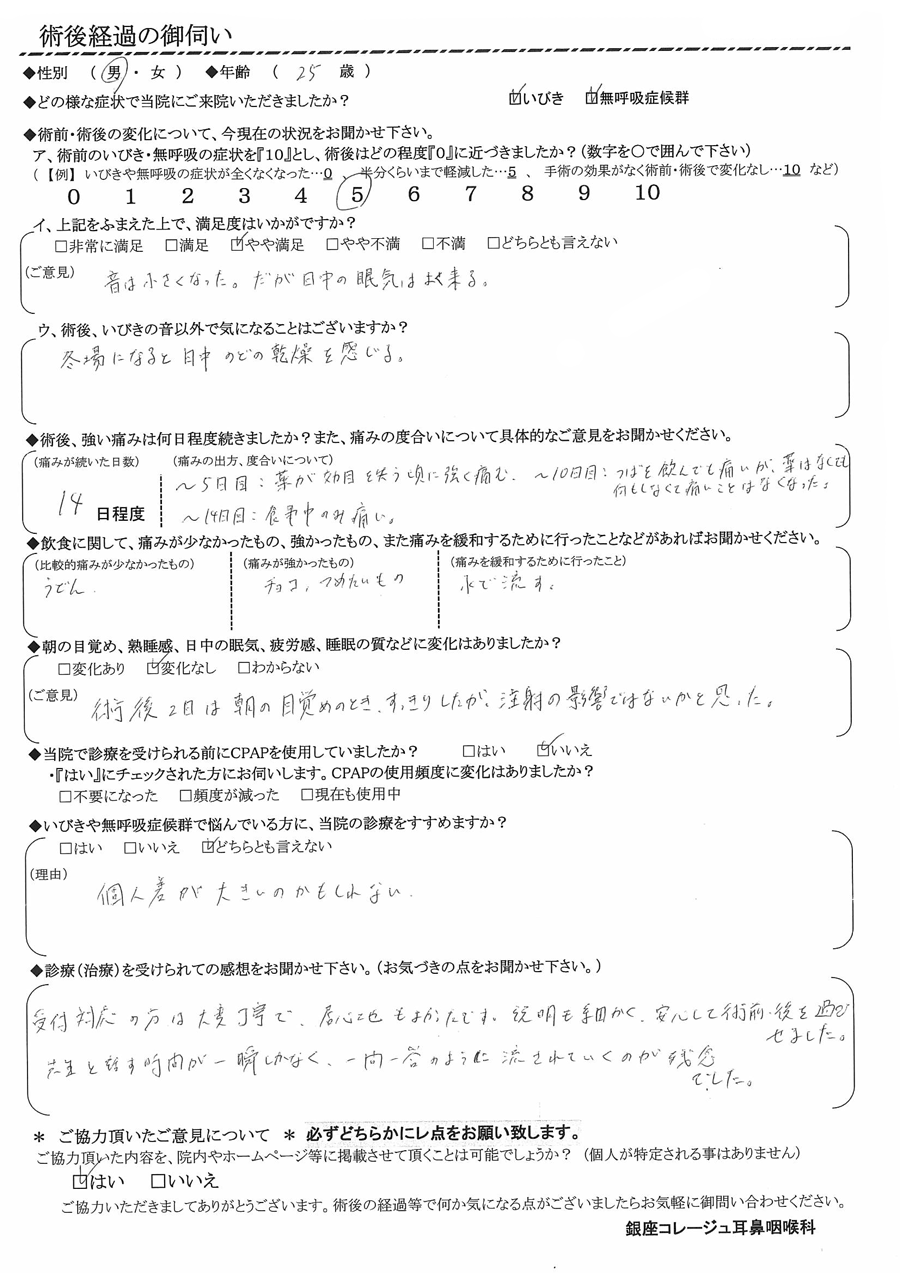 術後経過の御伺い
◆性別 ( 男 ・ 女 ) ◆年齢 ( 25 歳 )
◆どの様な症状で当院にご来院いただきましたか? ☑いびき ☑無呼吸症候群
◆術前・術後の変化について、今現在の状況をお聞かせ下さい。
ア、術前のいびき・無呼吸の症状を『10』とし、術後はどの程度『0』に近づきましたか?(数字を〇で囲んで下さい)
(【例】 いびきや無呼吸の症状が全くなくなった…0 、 半分くらいまで軽減した…5 、 手術の効果がなく術前・術後で変化なし…10 など)
0 1 2 3 4 5 6 7 8 9 10
イ、上記をふまえた上で、満足度はいかがですか?
□非常に満足 □満足 ☑やや満足 □やや不満 □不満 □どちらとも言えない
(ご意見) 音は小さくなった。だが日中の眠気はよく来る。
ウ、術後、いびきの音以外で気になることはございますか?
冬場になると日中のどの乾燥を感じる。
◆術後、強い痛みは何日程度続きましたか?また、痛みの度合いについて具体的なご意見をお聞かせください。
(痛みが続いた日数) (痛みの出方、度合いについて)
14 日程度
~5日目:薬が効目を失う頃に強く痛む. ~10日目:つばを飲んでも痛いが、薬はなくても
何もしなくて痛いことはなくなった。
~14日目:食事中のみ痛い。
◆飲食に関して、痛みが少なかったもの、強かったもの、また痛みを緩和するために行ったことなどがあればお聞かせください。
(比較的痛みが少なかったもの) (痛みが強かったもの) (痛みを緩和するために行ったこと)
うどん. チョコ, つめたいもの 水で流す。
◆朝の目覚め、熟睡感、日中の眠気、疲労感、睡眠の質などに変化はありましたか?
□変化あり ☑変化なし □わからない
(ご意見) 術後2日は朝の目覚めのとき、すっきりしたが、注射の影響ではないかと思った。
◆当院で診療を受けられる前にCPAPを使用していましたか? □はい ☑いいえ
・『はい』にチェックされた方にお伺いします。CPAPの使用頻度に変化はありましたか?
□不要になった □頻度が減った □現在も使用中
◆いびきや無呼吸症候群で悩んでいる方に、当院の診療をすすめますか?
□はい □いいえ ☑どちらとも言えない
(理由) 個人差が大きいのかもしれない.
◆診療(治療)を受けられての感想をお聞かせ下さい。(お気づきの点をお聞かせ下さい。)
受付対応の方は大変丁寧で、居心地もよかったです。説明も細かく、安心して術前・後を過ご
せました。
先生と話す時間が一瞬しかなく、一問一答のように流されていくのが残念
でした。
* ご協力頂いたご意見について * 必ずどちらかにレ点をお願い致します。
ご協力頂いた内容を、院内やホームページ等に掲載させて頂くことは可能でしょうか? (個人が特定される事はありません)
☑はい □いいえ
ご協力いただきましてありがとうございます。術後の経過等で何か気になる点がございましたらお気軽に御問い合わせください。
銀座コレージュ耳鼻咽喉科